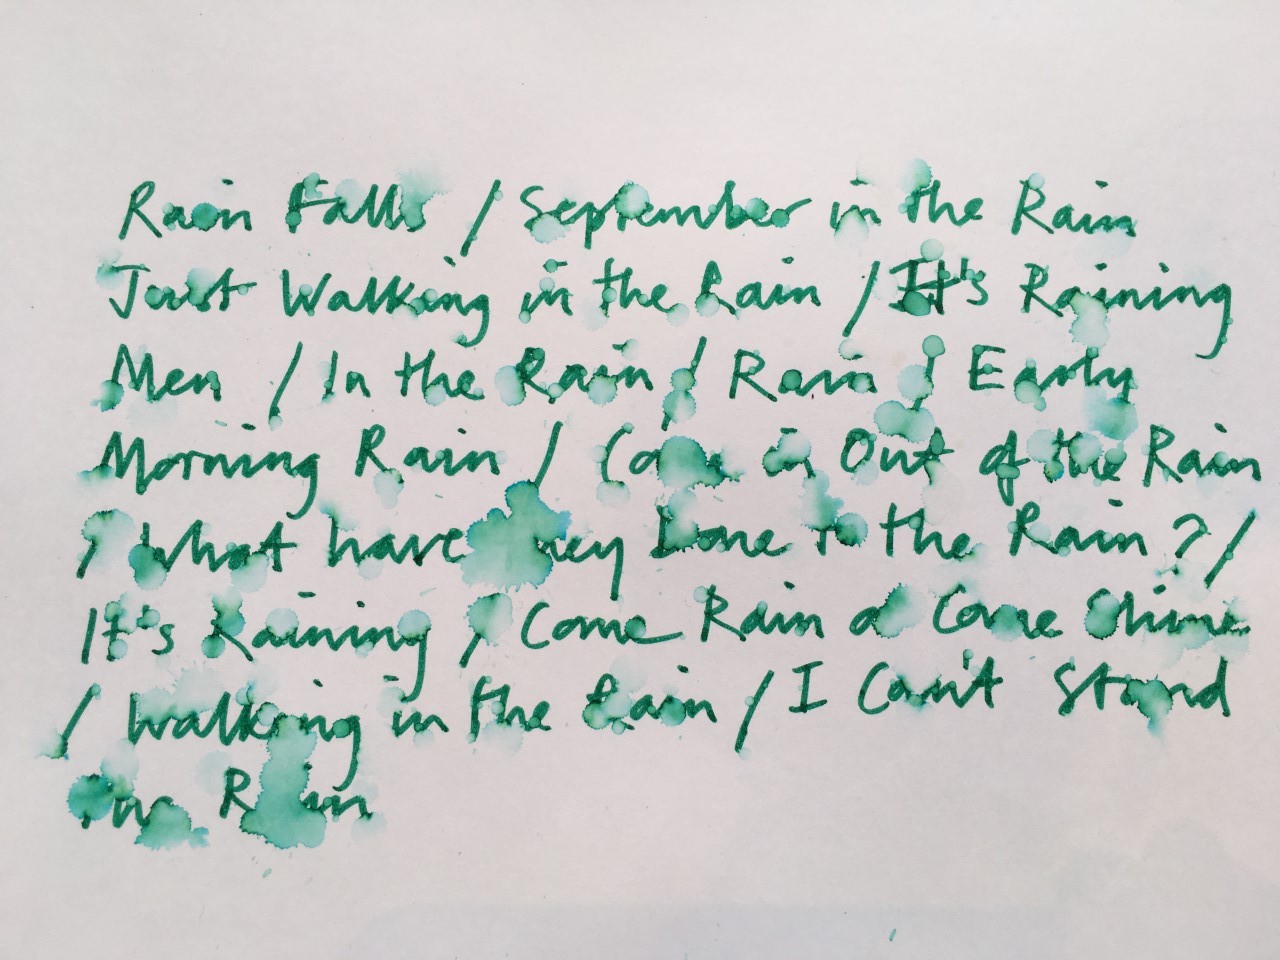 Rain Falls / September in the Rain
Just Walking in the Rain / It's Raining
Men / In the Rain / Rain / Early
Morning Rain / Come in Out of the Rain
/ What have they Done to the Rain? /
It's Raining / Come Rain or Come Shine
/ Walking in the Rain / I Can't Stand
Rain